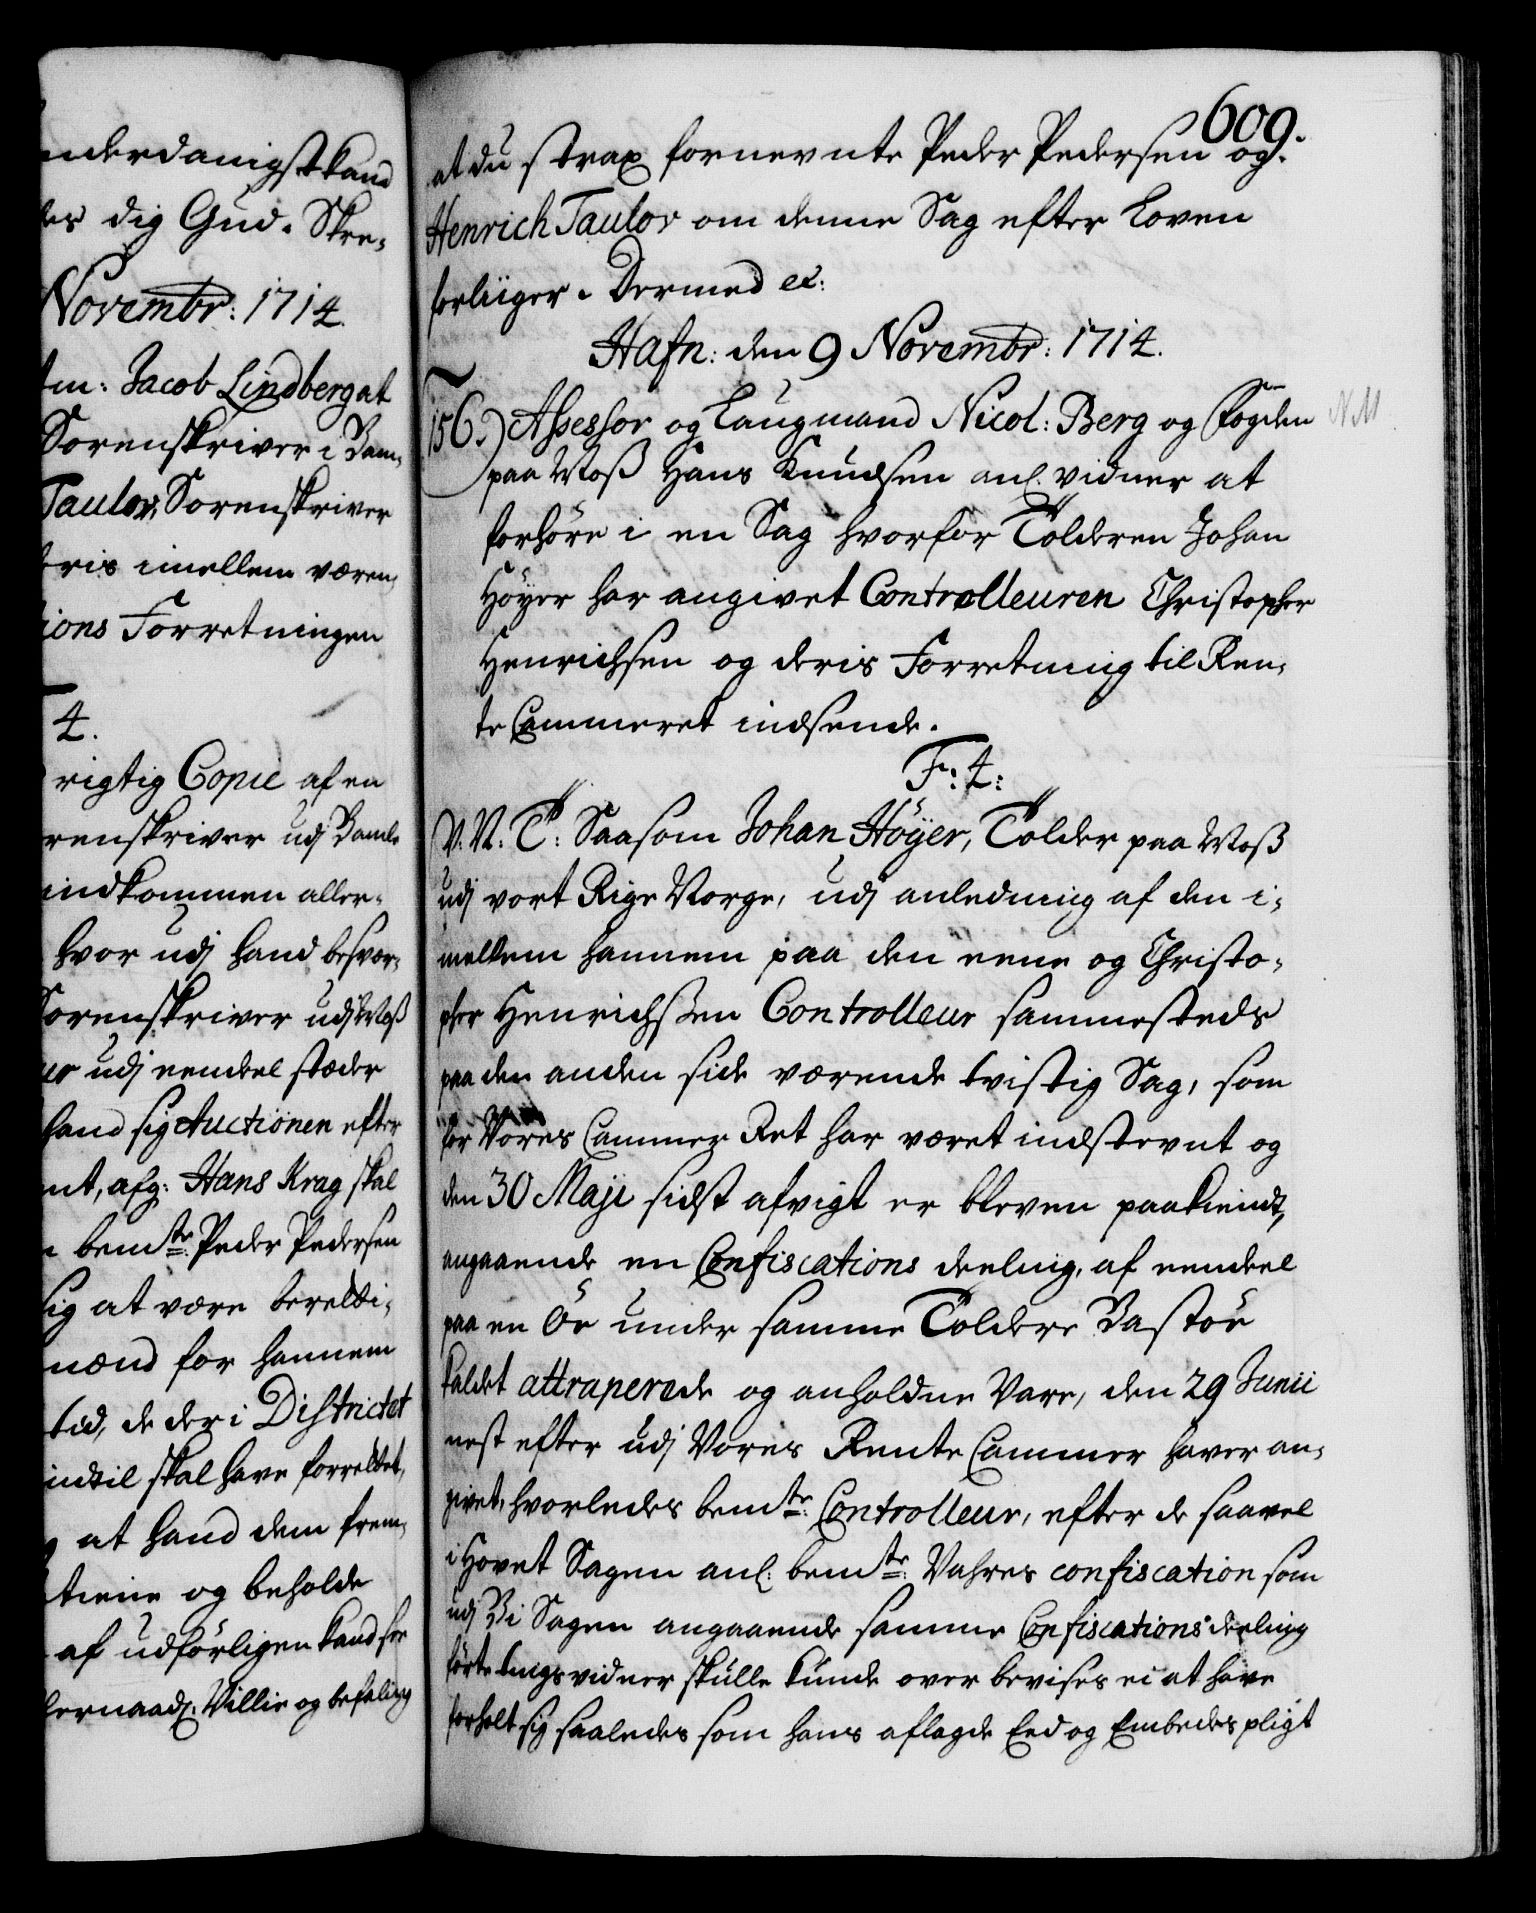 nderdanigst kand
des dig Gud. Skre-
Novembr: 1714.
tm: Jacob Lindberg at
Sorenskriver i Bam-
Taulov, Sorenskriver
eris imellem væren,
ions Forretningen
4.
rigtig Copie af en
renskriver udj Bamle
indkommen aller-
hvor udj hand besvær-
Sorenskriver udj Moß
udj eendeel stæder
hand sig Auctionen efter
nt, afg: Hans Krag skal
bemte: Peder Pedersen
sig at være beretti-
mænd for hannem
tid, de der i Districtet
indtil skal have forrettet,
at hand dem frem-
tiene og beholde
af udførligen kand see
lernaadg. Villie og befaling
609.
at du strax fornevnte Peder Pedersen og
Henrich Taulov om denne Sag efter Loven
forliiger. Dermed etc:
Hafn: den 9 Novembr: 1714.
156.) Assessor og Laugmand Nicol: Berg og Fogden
N M
paa Moß Hans Knudsen anl. vidner at
forhøre i en Sag hvorfor Tolderen Johan
Höyer har angivet Controlleuren Christopher
Henrichsen og deris Forretning til Ren-
te Cammeret indsende.
F: 4:
V. N. T: Saasom Johan Höyer, Tolder paa Moß
udj vort Rige Norge, udj anledning af den i-
mellem hannem paa den eene og Christo-
pher Henrichßen Controlleur sammesteds
paa den anden side værende tvistig Sag, som
for Vores Cammer Ret har været indstevnt og
den 30 Maji sidst afvigt er bleven paakiendt,
angaaende en Confiscations deeling, af eendeel
paa en Öe under samme Toldere Bastöe
kaldet attraperede og anholdne Vare, den 29 Junii
nest efter udj Vores Rente Cammer haver an-
givet, hvorledes bemte: Controlleur, efter de saavel
i Hovet Sagen anl: bemte: Vahres confiscation som
udj Bi Sagen angaaende samme Confiscations deeling
førte tings vidner skulle kunde over bevises ei at have
forholt sig saaledes som hans aflagde Eed og Embedes pligt